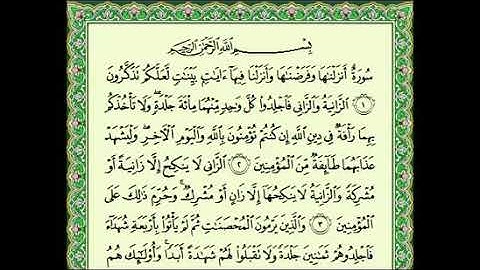 بِسْمِ اللَّهِ الرَّحْمَٰنِ الرَّحِيمِ
سُورَةٌ أَنزَلْنَٰهَا وَفَرَضْنَٰهَا وَأَنزَلْنَا فِيهَآ ءَايَٰتٍۭ بَيِّنَٰتٍ لَّعَلَّكُمْ تَذَكَّرُونَ
١ الزَّانِيَةُ وَالزَّانِي فَاجْلِدُوا كُلَّ وَٰحِدٍ مِّنْهُمَا مِا۟ئَةَ جَلْدَةٍ ۖ وَلَا تَأْخُذْكُم
بِهِمَا رَأْفَةٌ فِي دِينِ اللَّهِ إِن كُنتُمْ تُؤْمِنُونَ بِاللَّهِ وَالْيَوْمِ الْءَاخِرِ ۖ وَلْيَشْهَدْ
عَذَابَهُمَا طَآئِفَةٌ مِّنَ الْمُؤْمِنِينَ ٢ الزَّانِي لَا يَنكِحُ إِلَّا زَانِيَةً أَوْ
مُشْرِكَةً وَالزَّانِيَةُ لَا يَنكِحُهَآ إِلَّا زَانٍ أَوْ مُشْرِكٌ ۚ وَحُرِّمَ ذَٰلِكَ عَلَى
الْمُؤْمِنِينَ ٣ وَالَّذِينَ يَرْمُونَ الْمُحْصَنَٰتِ ثُمَّ لَمْ يَأْتُوا بِأَرْبَعَةِ شُهَدَآءَ
فَاجْلِدُوهُمْ ثَمَٰنِينَ جَلْدَةً وَلَا تَقْبَلُوا لَهُمْ شَهَٰدَةً أَبَدًا ۚ وَأُولَٰٓئِكَ هُمُ